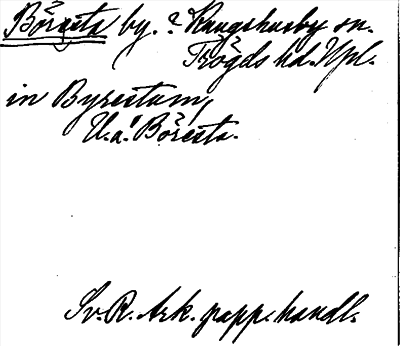 Böresta by. ? Kungshusby sn.
Trögds hd. Upl.
in Byrestum,
U. a. Böresta.
Sv. R. Ark. papp. handl.